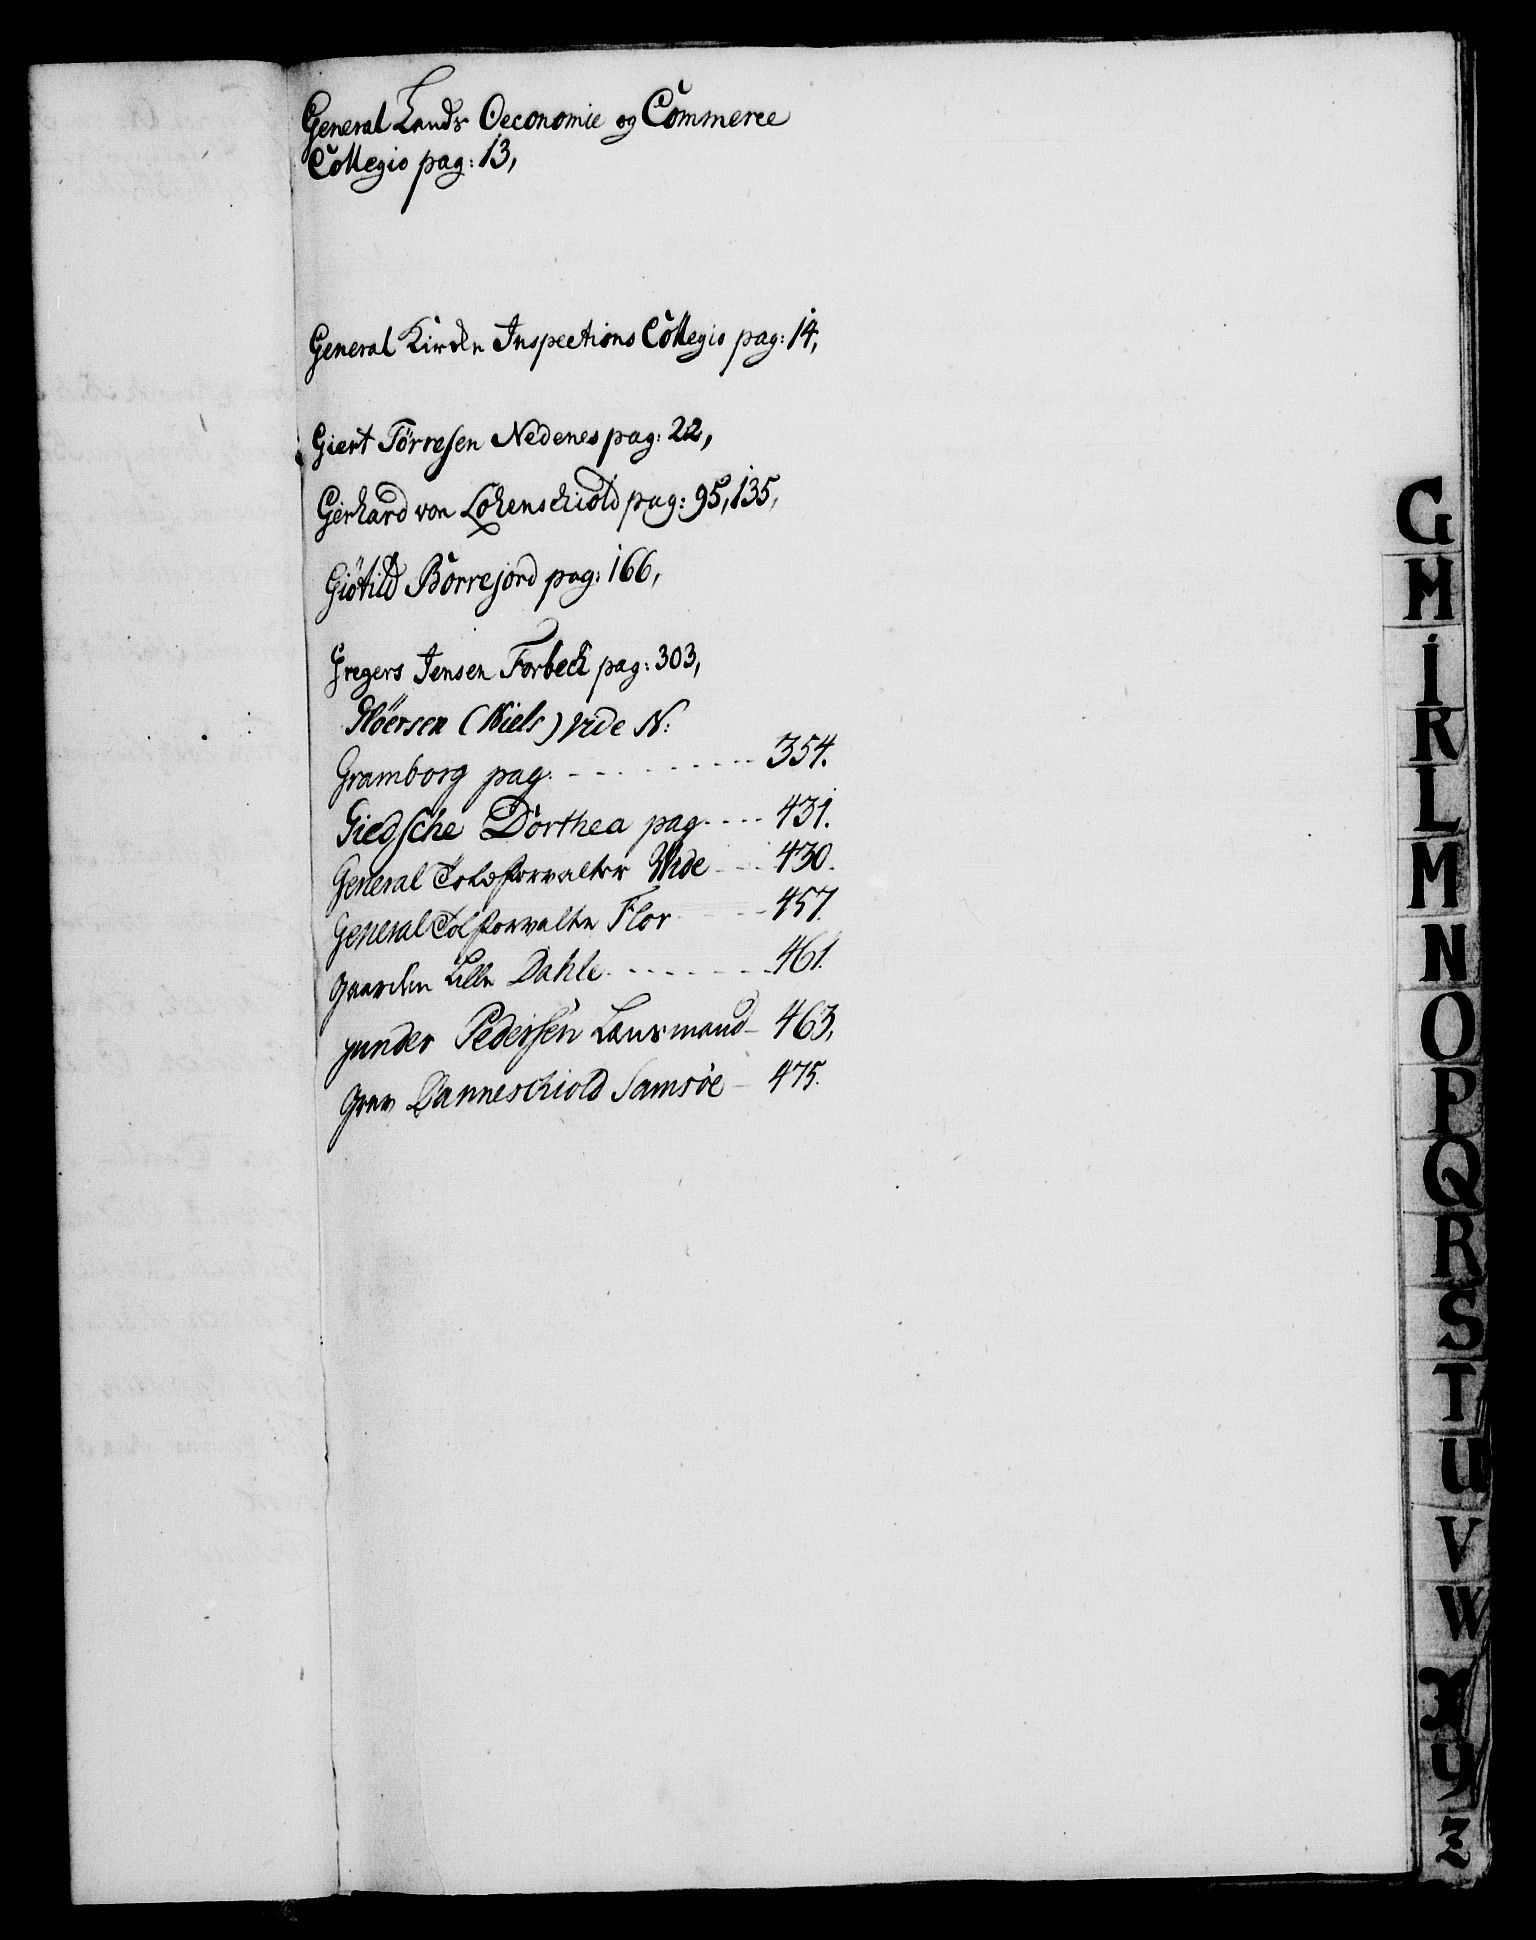 General Lands Oeconomie og Commerce
Collegio pag: 13,
General Kirche Inspections Collegio pag: 14,
Giert Törresen Nedenes pag: 22,
Gerhard von Lohenschiold pag: 95, 135,
Giötild Borrejord pag: 166,
Gregers Jensen Forbech pag: 303,
Glöersen (Niels) vide N:
Gramborg pag. 354.
Giedsche Dorthea pag. 431.
General Toldforvalter Wide 430.
General Tolforvalter Flor 457.
gaarden Lille Dahle 461.
gunder Pedersen Lensmand 463.
grev Danneschiold Samsöe 475.
G
H
I
K
L
M
N
O
P
Q
R
S
T
U
V
W
X
Y
Z